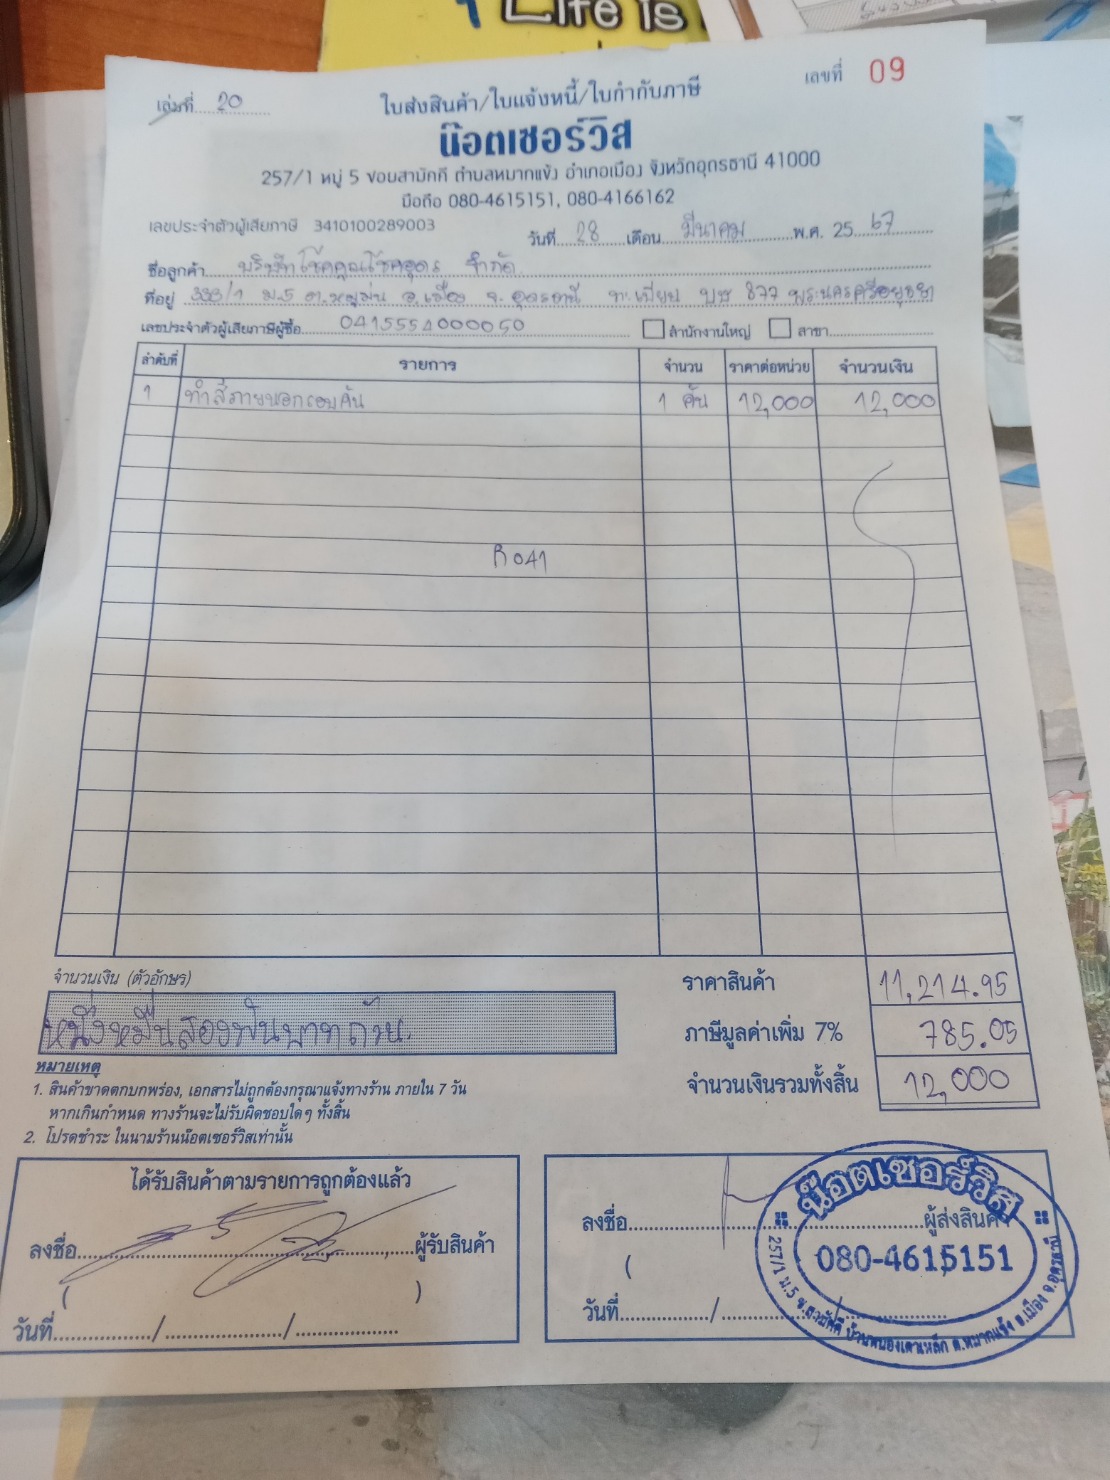 Life is
เล่มที่ 20
เลขที่ 09
ใบส่งสินค้า/ใบแจ้งหนี้/ใบกำกับภาษี
น๊อตเซอร์วิส
257/1 หมู่ 5 ซอยสามัคคี ตำบลหมากแข้ง อำเภอเมือง จังหวัดอุดรธานี 41000
มือถือ 080-4615151, 080-4166162
เลขประจำตัวผู้เสียภาษี 3410100289003
วันที่ 28 เดือน มีนาคม พ.ศ. 25 67
ชื่อลูกค้า บริษัทโชคคูณโชคอุดร จำกัด
ที่อยู่ 333/1 ม.5 ต.หมูม่น อ.เมือง จ.อุดรธานี ทะเบียน บษ 877 พระนครศรีอยุธยา
เลขประจำตัวผู้เสียภาษีผู้ซื้อ 0415554000050 สำนักงานใหญ่ สาขา
ลำดับที่ รายการ จำนวน ราคาต่อหน่วย จำนวนเงิน
1 ทำสีภายนอกรอบคัน 1 คัน 12,000 12,000
R041
จำนวนเงิน (ตัวอักษร)
หนึ่งหมื่นสองพันบาทถ้วน.
ราคาสินค้า 11,214.95
ภาษีมูลค่าเพิ่ม 7% 785.05
จำนวนเงินรวมทั้งสิ้น 12,000
หมายเหตุ
1. สินค้าขาดตกบกพร่อง, เอกสารไม่ถูกต้องกรุณาแจ้งทางร้าน ภายใน 7 วัน
หากเกินกำหนด ทางร้านจะไม่รับผิดชอบใดๆ ทั้งสิ้น
2. โปรดชำระ ในนามร้านน๊อตเซอร์วิสเท่านั้น
ได้รับสินค้าตามรายการถูกต้องแล้ว
ลงชื่อ ผู้รับสินค้า
( )
วันที่ / /
ลงชื่อ ผู้ส่งสินค้า
(
วันที่ / /
น๊อตเซอร์วิส
080-4615151
257/1 ม.5 ซ.สามัคคี บ้านหนองเตาเหล็ก ต.หมากแข้ง อ.เมือง จ.อุดรธานี